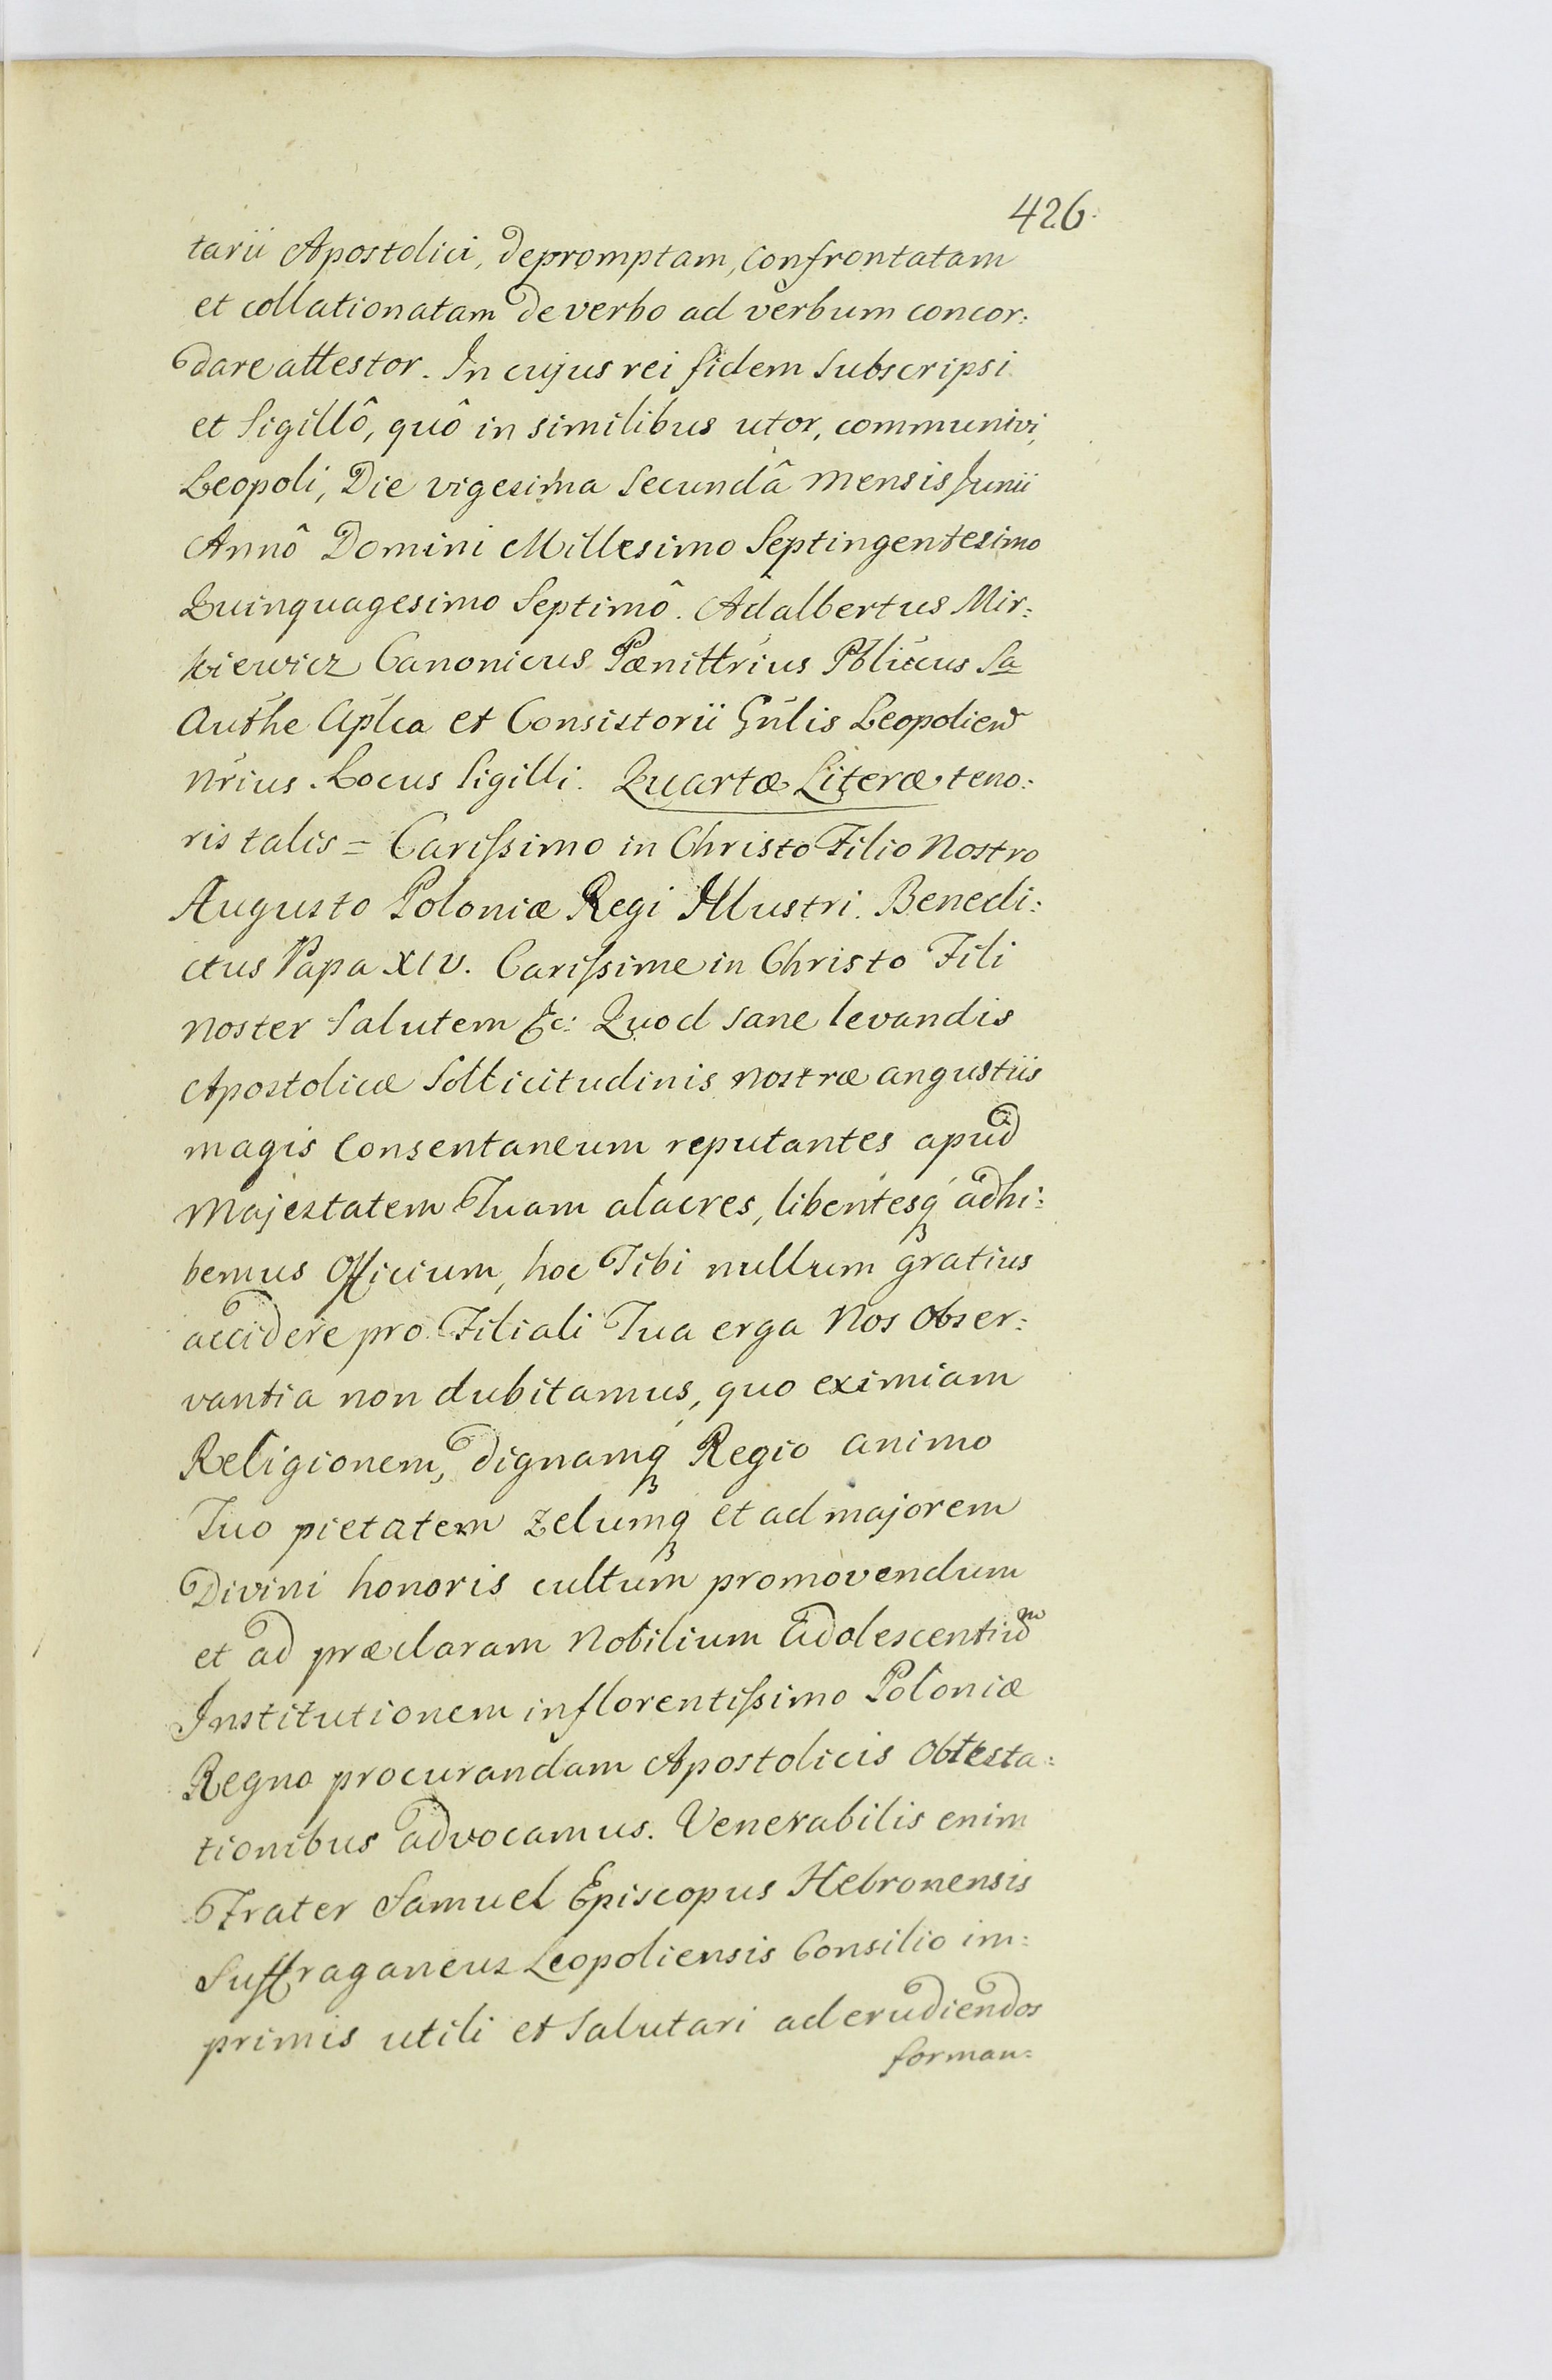 426.
tarii Apostolici, depromptam, confrontatam
et collationatam de verbo ad verbum concor:
dare attestor. In cujus rei fidem Subscripsi
et Sigillô, quô in similibus utor, communivi,
Leopoli, Die vigesima Secundâ mensis Junii
Annô Domini Millesimo Septingentesimo
Quinquagesimo Septimô. Adalbertus Mir:
kiewicz Canonicus Pœnittrius Pblicus Sa
Authe Aplca et Consistorii Gnlis Leopolien
Nrius. Locus Sigilli. Quartæ Literæ teno:
ris talis = Carissimo in Christo Filio Nostro
Augusto Poloniæ Regi Illustri. Benedi:
ctus Papa XIV. Carissime in Christo Fili
Noster Salutem &c: Quod sane levandis
Apostolicæ Sollicitudinis nostræ angustiis
magis Consentaneum reputantes apud
Majestatem Tuam alacres, libentesq adhi:
bemus Officium, hoc Tibi nullum gratius
accidere pro Filiali Tua erga Nos Obser:
vantia non dubitamus, quo eximiam
Religionem, dignamq Regio animo
Tuo pietatem zelumq et ad majorem
Divini honoris cultum promovendum
et ad præclaram Nobilium Adolescentium
Institutionem in florentissimo Poloniæ
Regno procurandam Apostolicis Obtesta:
tionibus advocamus. Venerabilis enim
Frater Samuel Episcopus Hebronensis
Suffraganeus Leopoliensis Consilio im:
primis utili et Salutari ad erudiendos
forman: